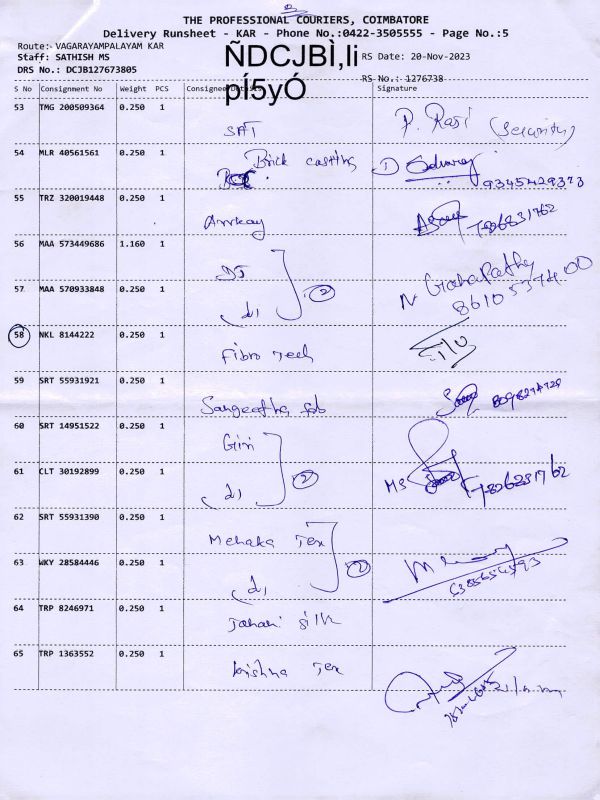 THE PROFESSIONAL COURIERS, COIMBATORE
Delivery Runsheet - KAR - Phone No.:0422-3505555 - Page No.:5
Route: VAGARAYAMPALAYAM KAR
Staff: SATHISH MS
DRS No.: DCJB127673805
ÑDCJBÌ,li
pÍ5yÓ
RS Date: 20-Nov-2023
RS No.: 1276738
S No Consignment No Weight PCS Consignee Details Signature
53 TMG 200509364 0.250 1
SAT P. Rasi (Security)
54 MLR 40561561 0.250 1
Brick casting 9345429373
55 TRZ 320019448 0.250 1
Annkay
56 MAA 573449686 1.160 1
DJ
57 MAA 570933848 0.250 1
d1 2 N Gahapathy
8610537400
58 NKL 8144222 0.250 1
Fibro Tech
59 SRT 55931921 0.250 1
Sangeetha fab
60 SRT 14951522 0.250 1
Giri
61 CLT 30192899 0.250 1
d1 2 MS
62 SRT 55931390 0.250 1
Mehaka Tex
63 WKY 28584446 0.250 1
d1 2
64 TRP 8246971 0.250 1
silk
65 TRP 1363552 0.250 1
krishna Tex